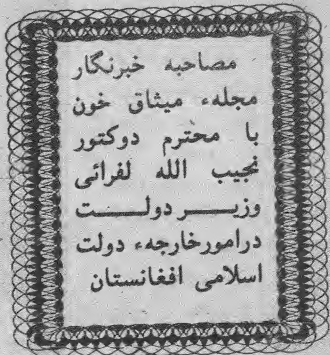 مصاحبه خبرنگار
مجلهء میثاق خون
با محترم دوکتور
نجیب الله لفرائی
وزیـــر دولـــــت
درامورخارجهء دولت
اسلامی افغانستان